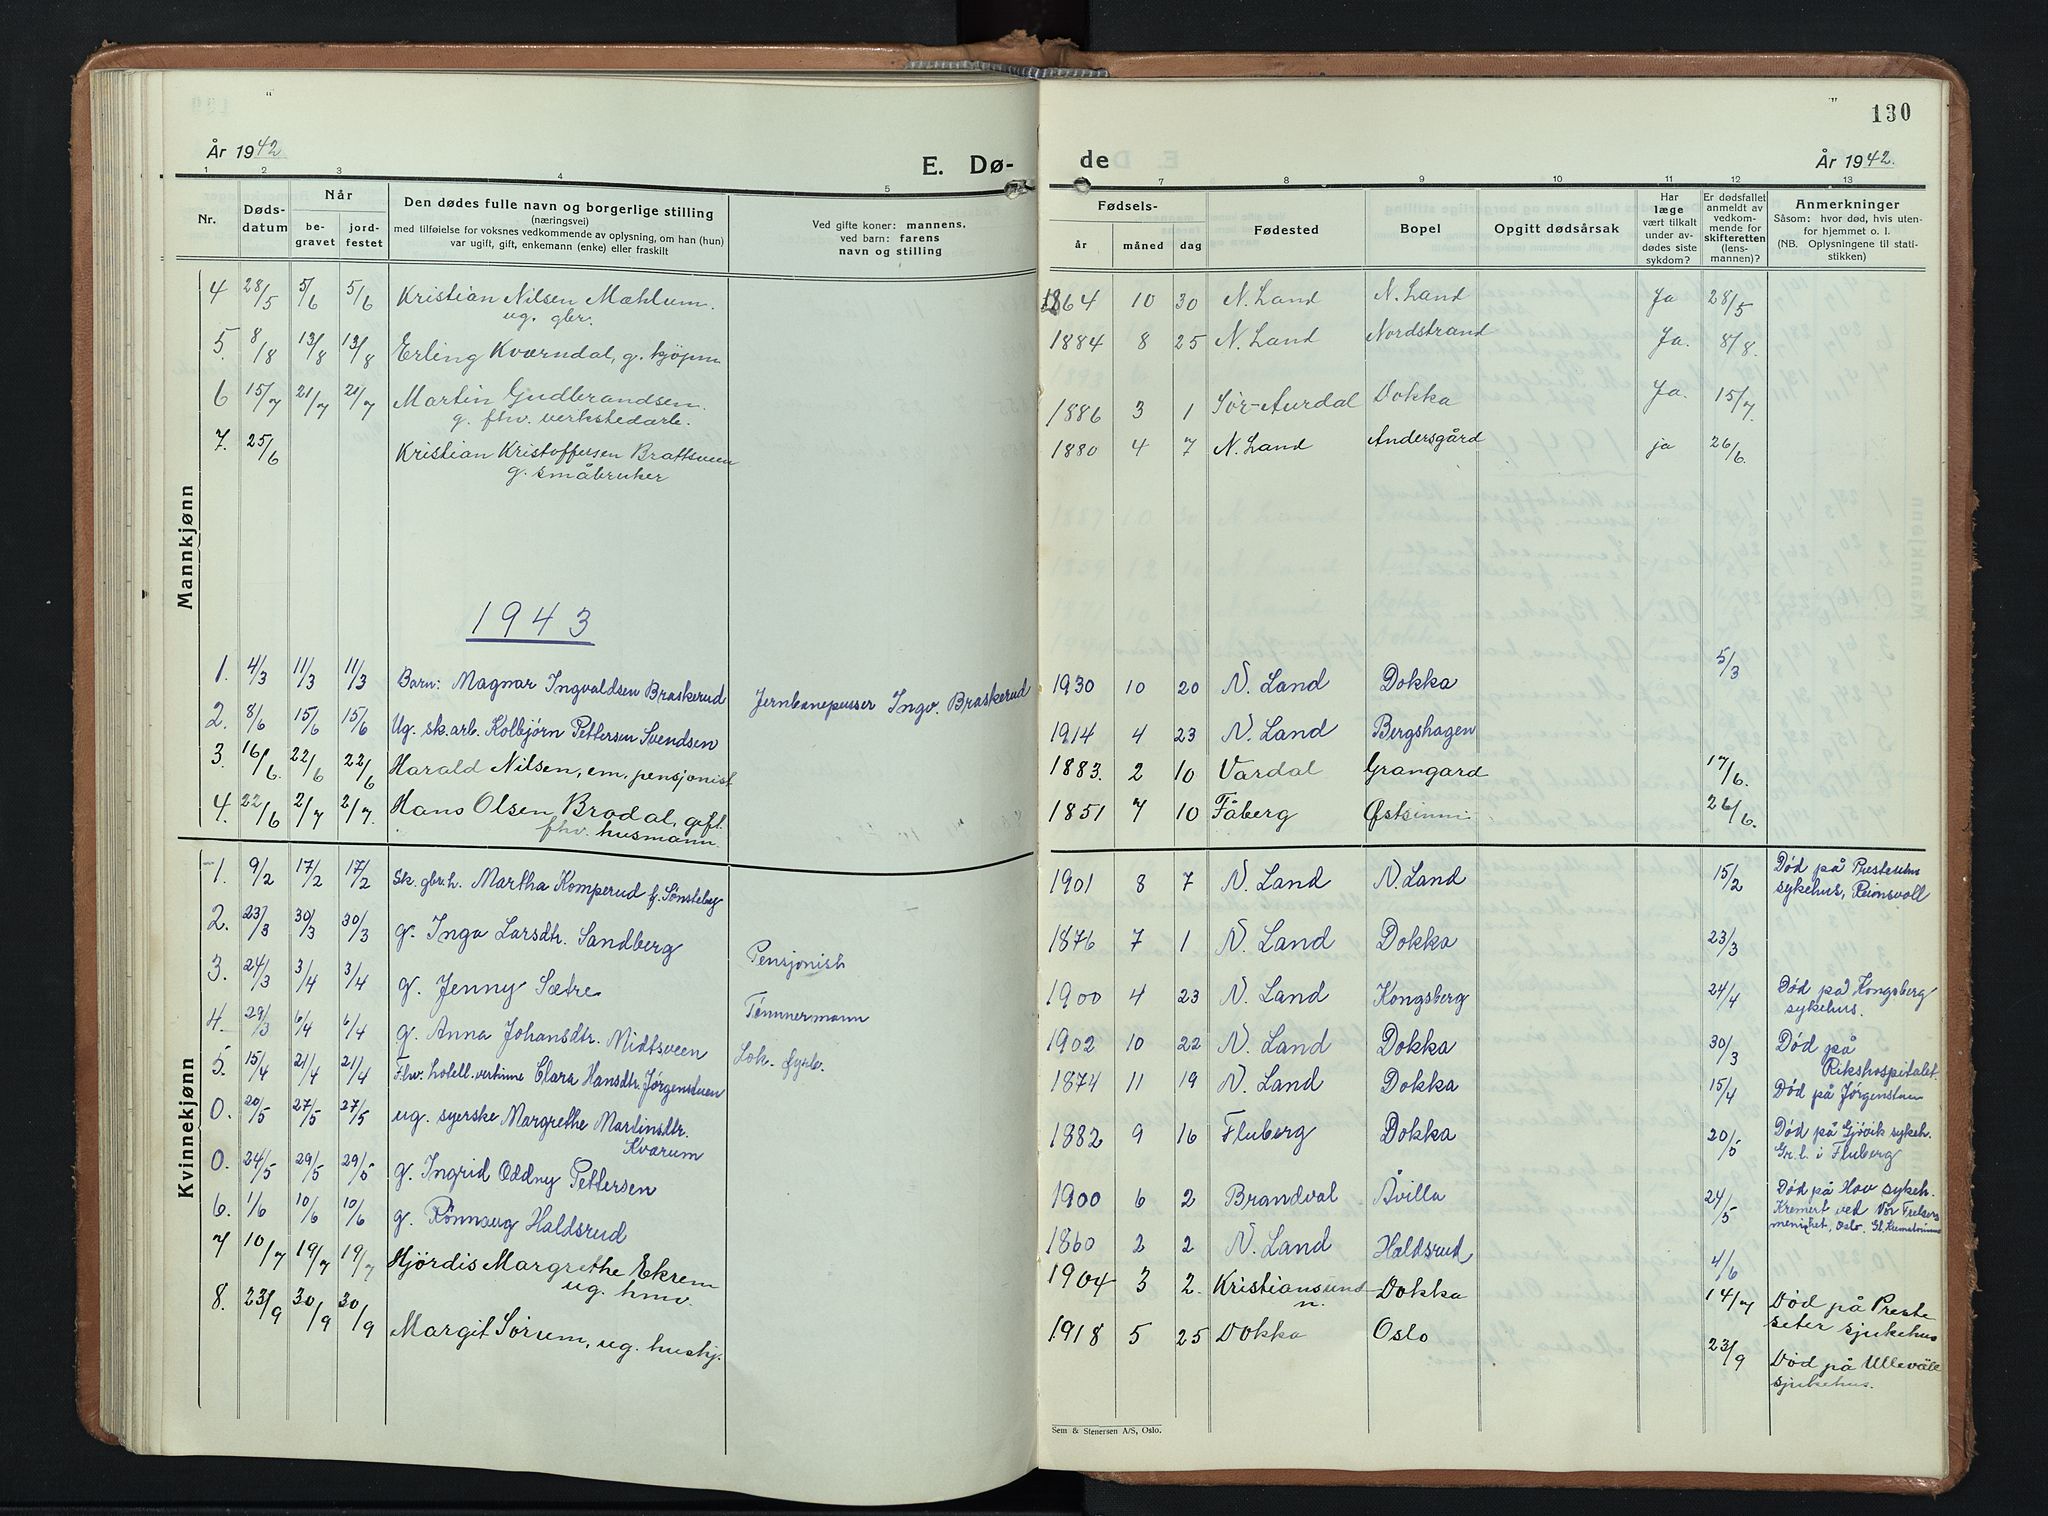 130
År 1942
E. Dø-
de
År 1942.
1 2 3 4 5
7 8 9 10 11 12 13
Nr.
Døds-
datum
Når
be-
gravet
jord-
festet
Den dødes fulle navn og borgerlige stilling
(næringsvei)
med tilføielse for voksnes vedkommende av oplysning, om han (hun)
var ugift, gift, enkemann (enke) eller fraskilt
Ved gifte koner: mannens.
ved barn: farens
navn og stilling
Fødsels-
år måned dag
Fødested
Bopel
Opgitt dødsårsak
Har
læge
vært tilkalt
under av-
dødes siste
sykdom?
Er dødsfallet
anmeldt av
vedkom-
mende for
skifteretten
(lens-
mannen)?
Anmerkninger
Såsom: hvor død, hvis uten-
for hjemmet o. l.
(NB. Oplysningene til stati-
stikken)
Mannkjønn
4 28/5 5/6 5/6 Kristian Nilsen Mæhlum. 1864 10 30 N. Land N. Land Ja 28/5
ug. gbr.
5. 8/8 13/8 13/8 Erling Kværndal, g. kjøpm 1884 8 25 N. Land Nordstrand Ja. 8/8.
6 15/7 21/7 21/7 Martin Gudbrandsen. 1886 3 1 Sør-Aurdal Dokka Ja. 15/7.
g. fhv. verkstedarb.
7. 25/6 Kristian Kristoffersen Brattsveen 1880 4 7 N. Land Andersgård ja 26/6.
g. småbruker
1943
1. 4/3 11/3 11/3 Barn: Magnar Ingvaldsen Braskerud Jernbanepusser Ingv. Braskerud 1930 10 20 N. Land Dokka 5/3
2. 8/6 15/6 15/6 Ug. sk.arb. Kolbjørn Pettersen Svendsen 1914 4 23 N. Land Bergshagen
3. 16/6. 22/6 22/6 Harald Nilsen, em. pensjonist 1883. 2 10 Vardal Grangard 17/6.
4. 22/6 2/7 2/7. Hans Olsen Brodal, gift. 1851 7 10 Fåberg Østsinni 26/6.
fhv. husmann.
Kvinnekjønn
1. 9/2 17/2 17/2 Sk. gbr.h. Martha Komperud f. Sønsteby 1901 8 7 N. Land N. Land 15/2 Død på Presteseter
sykehus, Reinsvoll
2. 23/3 30/3 30/3 g. Inga Larsdtr. Sandberg Pensjonist 1876 7 1 N. Land Dokka 23/3
3. 24/3 3/4 3/4 g. Jenny Sætre Tømmermann 1900 4 23 N. Land Kongsberg 24/4 Død på Kongsberg
sykehus.
4. 29/3 6/4 6/4 g. Anna Johansdtr. Midtsveen Lok. fyrb. 1902 10 22 N. Land Dokka 30/3 Død på
Rikshospitalet.
5. 15/4 21/4 21/4 Fhv. hotell.vertinne Clara Hansdtr. Jørgenstuen 1874 11 19 N. Land Dokka 15/4 Død på Jørgenstuen
0. 20/5 27/5 27/5 ug. syerske Margrethe Martinsdtr. 1882 9 16 Fluberg Dokka 20/5 Død på Gjøvik sykeh.
Kvarum Gr.l. i Fluberg
0. 24/5 29/5 29/5 g. Ingrid Oddny Pettersen 1900 6 2 Brandval Åvilla 24/5 Død på Hov sykeh.
Kremert ved Vår Frelsers
menighet, Oslo.
6. 1/6 10/6 10/6 g. Rønnaug Haldsrud 1860 2 2 N. Land Haldsrud 4/6
7 10/7 19/7 19/7 Hjørdis Margrethe Ekrem 1904 3 2. Kristiansund Dokka 14/7 Død på Preste
ug. hmv. n. seter sjukehus
8. 23/9 30/9 30/9 Margit Sørum, ug. hushj. 1918 5 25 Dokka Oslo 23/9 Død på Ullevåll
sjukehus.
Sem & Stenersen A/S, Oslo.